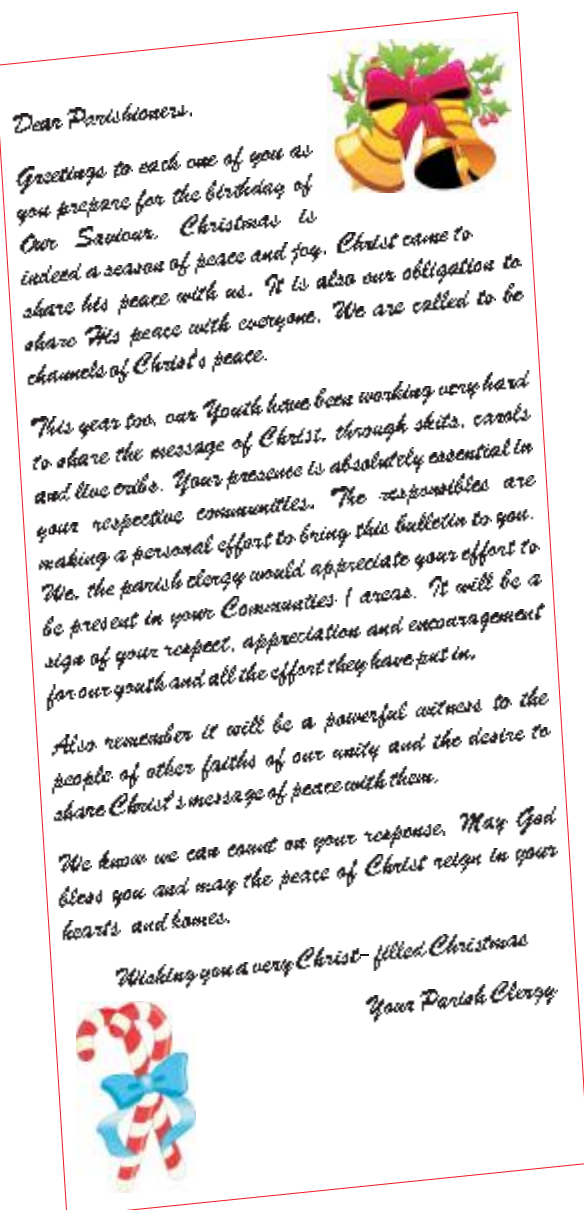 Dear Parishioners,
Greetings to each one of you as
you prepare for the birthday of
Our Saviour. Christmas is
indeed a season of peace and joy. Christ came to
share his peace with us. It is also our obligation to
share His peace with everyone. We are called to be
channels of Christ's peace.
This year too, our Youth have been working very hard
to share the message of Christ, through skits, carols
and live cribs. Your presence is absolutely essential in
your respective communities. The responsibles are
making a personal effort to bring this bulletin to you.
We, the parish clergy would appreciate your effort to
be present in your Communties / areas. It will be a
sign of your respect, appreciation and encouragement
for our youth and all the effort they have put in.
Also remember it will be a powerful witness to the
people of other faiths of our unity and the desire to
share Christ's message of peace with them.
We know we can count on your response. May God
bless you and may the peace of Christ reign in your
hearts and homes.
Wishing you a very Christ- filled Christmas
Your Parish Clergy